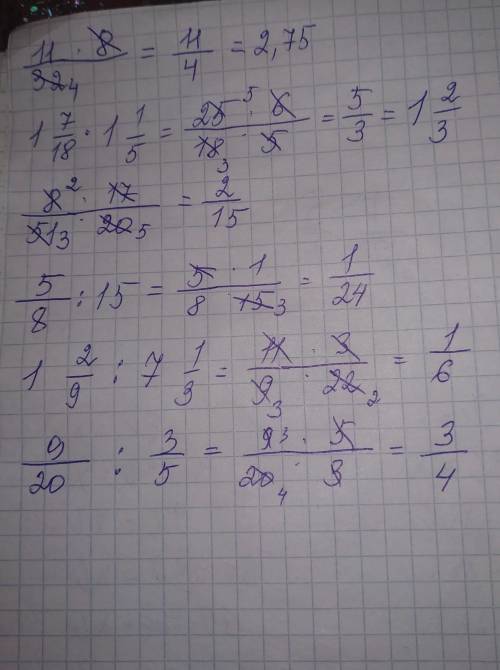 11 · 8 / 32 4 = 11/4 = 2,75
1 7/18 · 1 1/5 = 25 5 · 6 / 18 3 · 5 = 5/3 = 1 2/3
8 2 · 17 / 51 3 · 20 5 = 2/15
5/8 : 15 = 5 · 1 / 8 · 15 3 = 1/24
1 2/9 : 7 1/3 = 11 · 3 / 9 3 · 22 2 = 1/6
9/20 : 3/5 = 9 3 · 5 / 20 4 · 3 = 3/4